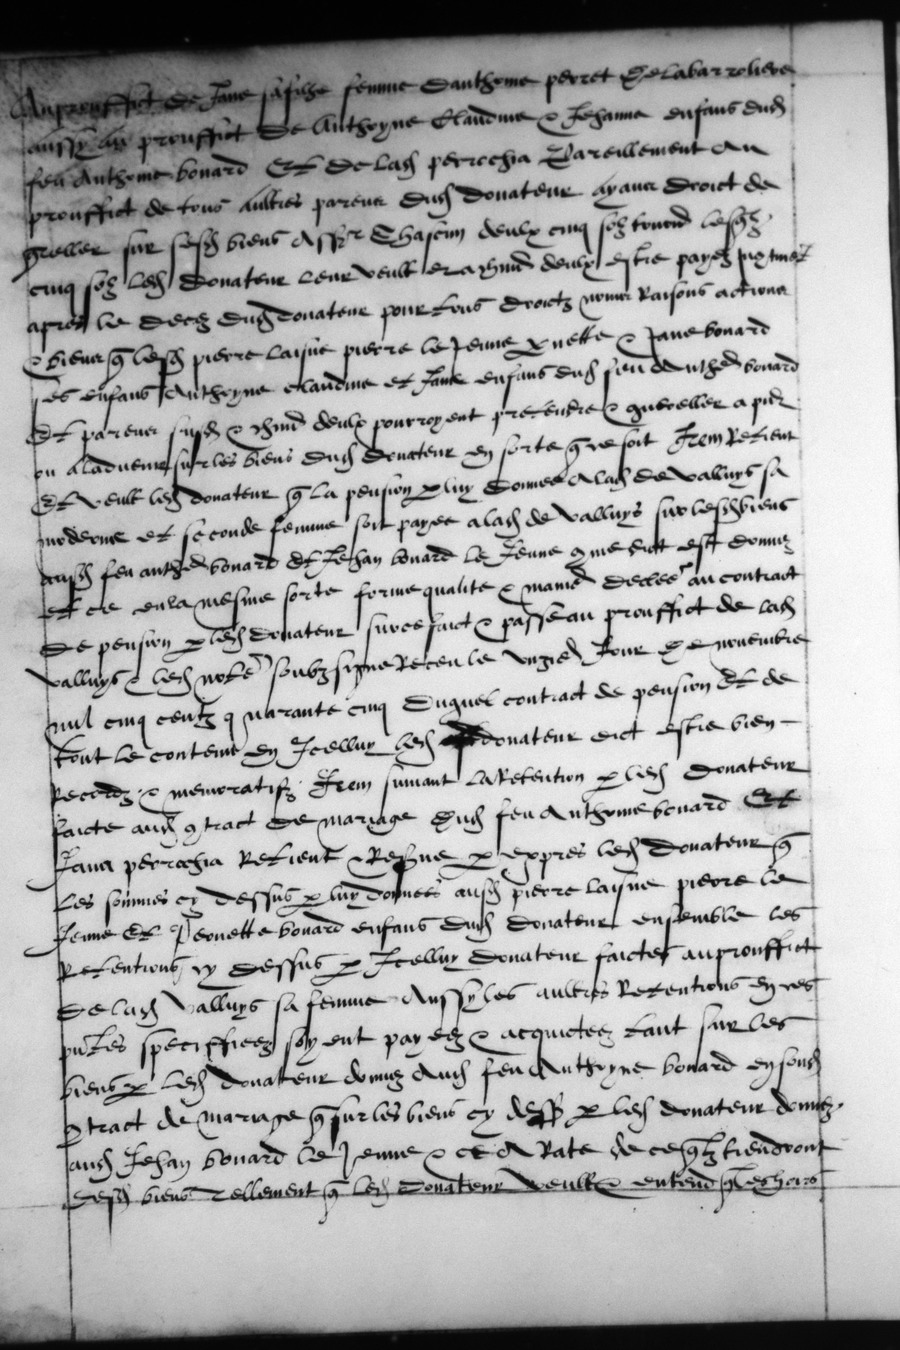 Au prouffict de Jane sa fille femme danthome perret de labarroliere
aussy au prouffict de Anthoyne Claudine & Jehanne enfans dud
feu Anthome bonard Et de lad perrochia Pareillement au
prouffict de tous aultres parens dud donateur ayans droict de
quereller sur sesd biens Assr Chascun deulx cinq solz tourn lesqlz
cinq solz led donateur leur veult & a chund deulx estre payez
apres le decez dud donateur pour tous droictz noms Raisons actions
& biens q lesd pierre laisne pierre le Jeune pnette & Jane bonard
ses enfans Anthoyne claudine et Jane enfans dud feu Anthe bonard
Et parens susd & chund deulx pourroyent pretendre & quereller a pnt
ou aladvenir sur les biens dud donateur en sorte q ce soit Item Retient
Et veult led donateur q la pension p luy donnee a lad de Valluys sa
moderne et seconde femme soit payee a lad de valluys sur lesd biens
ausd feu anthe bonard Et Jehan bonard le Jeune cme dict est donnez
et ce en la mesme sorte forme qualite & manie declee au contract
de pension p led donateur sur ce faict & passe au prouffict de lad
valluys & led note soubzsigne Receu le Unzie Jour de novembre
mil cinq centz quarante cinq Duquel contract de pension Et de
tout le contenu en Icelluy led donateur dict estre bien
recordz & memoratifz Item suivant la Retention p led donateur
faicte aud ctract de mariage dud feu Anthome bonard Et
Jana perrochia Retient & Reserve p expres led donateur q
les sommes cy dessus p luy donnees ausd pierre laisne pierre le
Jeune Et Peronette bonard enfans dud donateur ensemble les
Retentions cy dessus p Icelluy donateur faictes au prouffict
de lad Valluys sa femme Aussy les aultres Retentions en ces
pntes speciffiees soyent payees & acquictees tant sur les
biens p led donateur donnez Aud feu Anthoyne bonard en sond
ctract de mariage q sur les biens cy dessus p led donateur donnez
aud Jehan bonard le Jeune & ce A Rate de ce qlz tiendront
desd biens Tellement q led donateur veult & entend q les hoirs